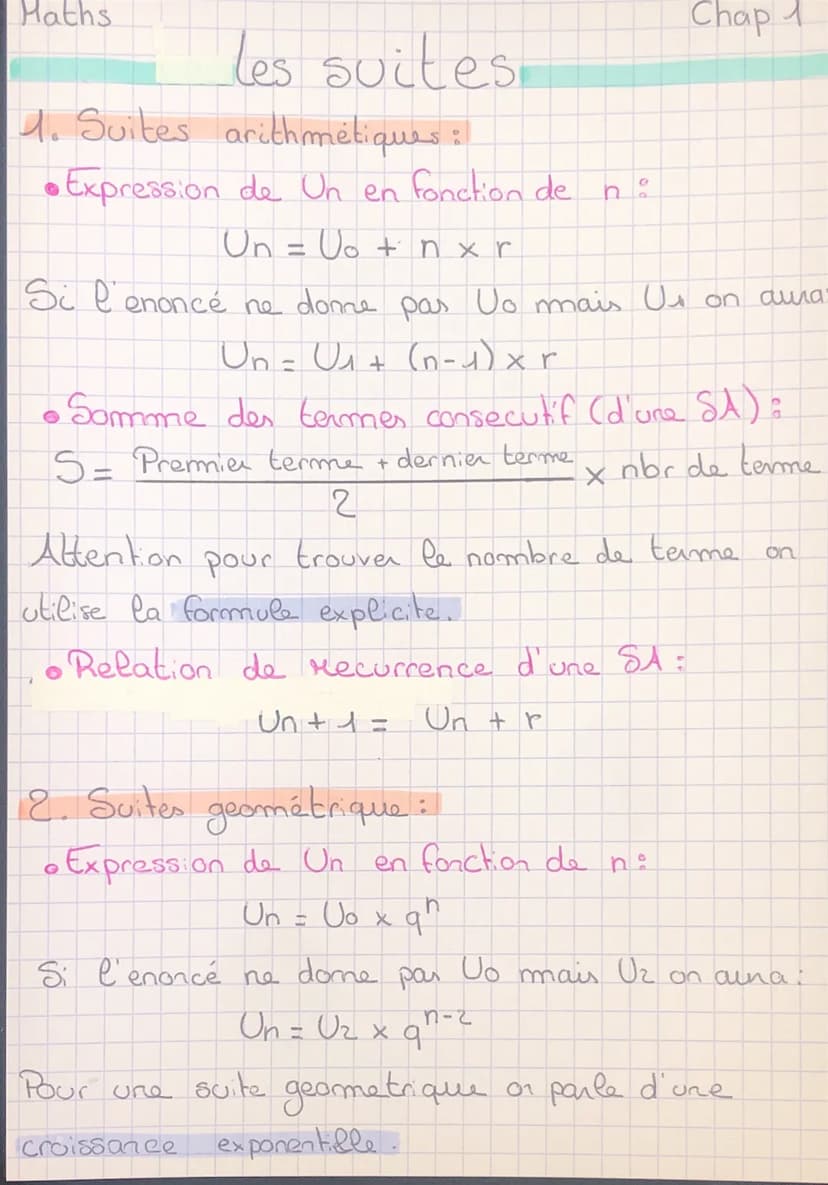 Maths Chap 1
les suites
1. Suites arithmétiques :
• Expression de Un en fonction de n :
Un = U0 + n x r
Si l'enoncé ne donne pas U0 mais U1 on aura:
Un = U1 + (n-1) x r
• Somme des termes consecutif (d'une SA) :
S = Premier terme + dernier terme / 2 x nbr de terme
Attention pour trouver le nombre de terme on
utilise la formule explicite.
• Relation de recurrence d'une SA :
Un + 1 = Un + r
2. Suites geométrique :
• Expression de Un en fonction de n :
Un = U0 x qⁿ
Si l'enoncé ne donne pas U0 mais U2 on aura :
Un = U2 x qⁿ⁻²
Pour une suite geometrique on parle d'une
croissance exponentielle.